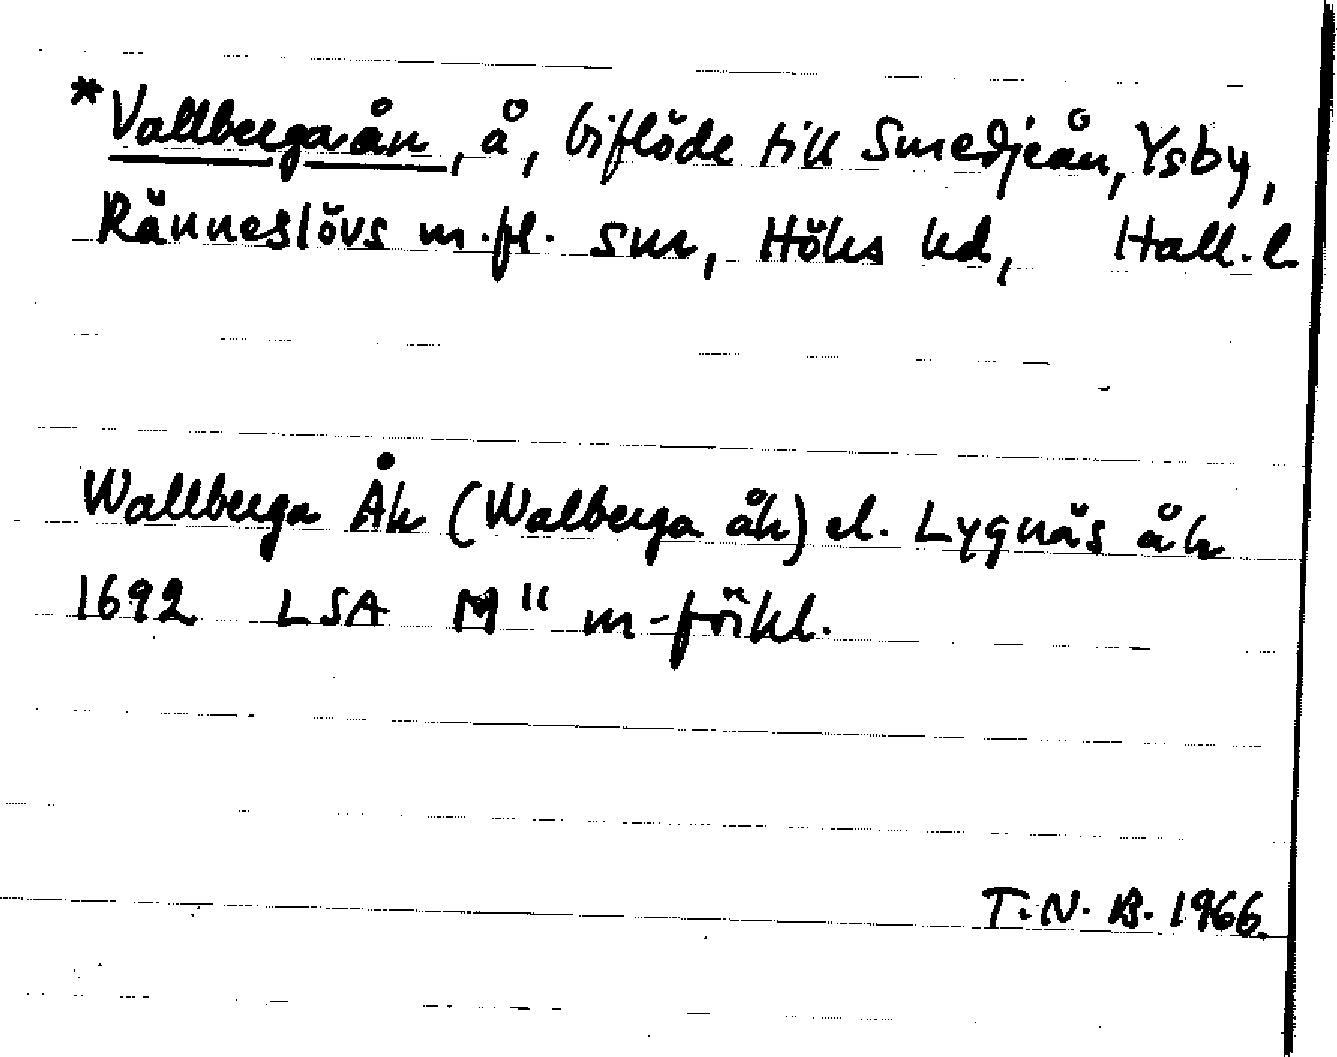 *Vallbergaån, å, biflöde till Smedjeån, Ysby,
Ränneslövs m.fl. snr, Höks hd, Hall. l
Wallberga Åh (Walberga åh) el. Lygnäs åh
1692 LSA M11 m-förkl.
T.N.B. 1966.